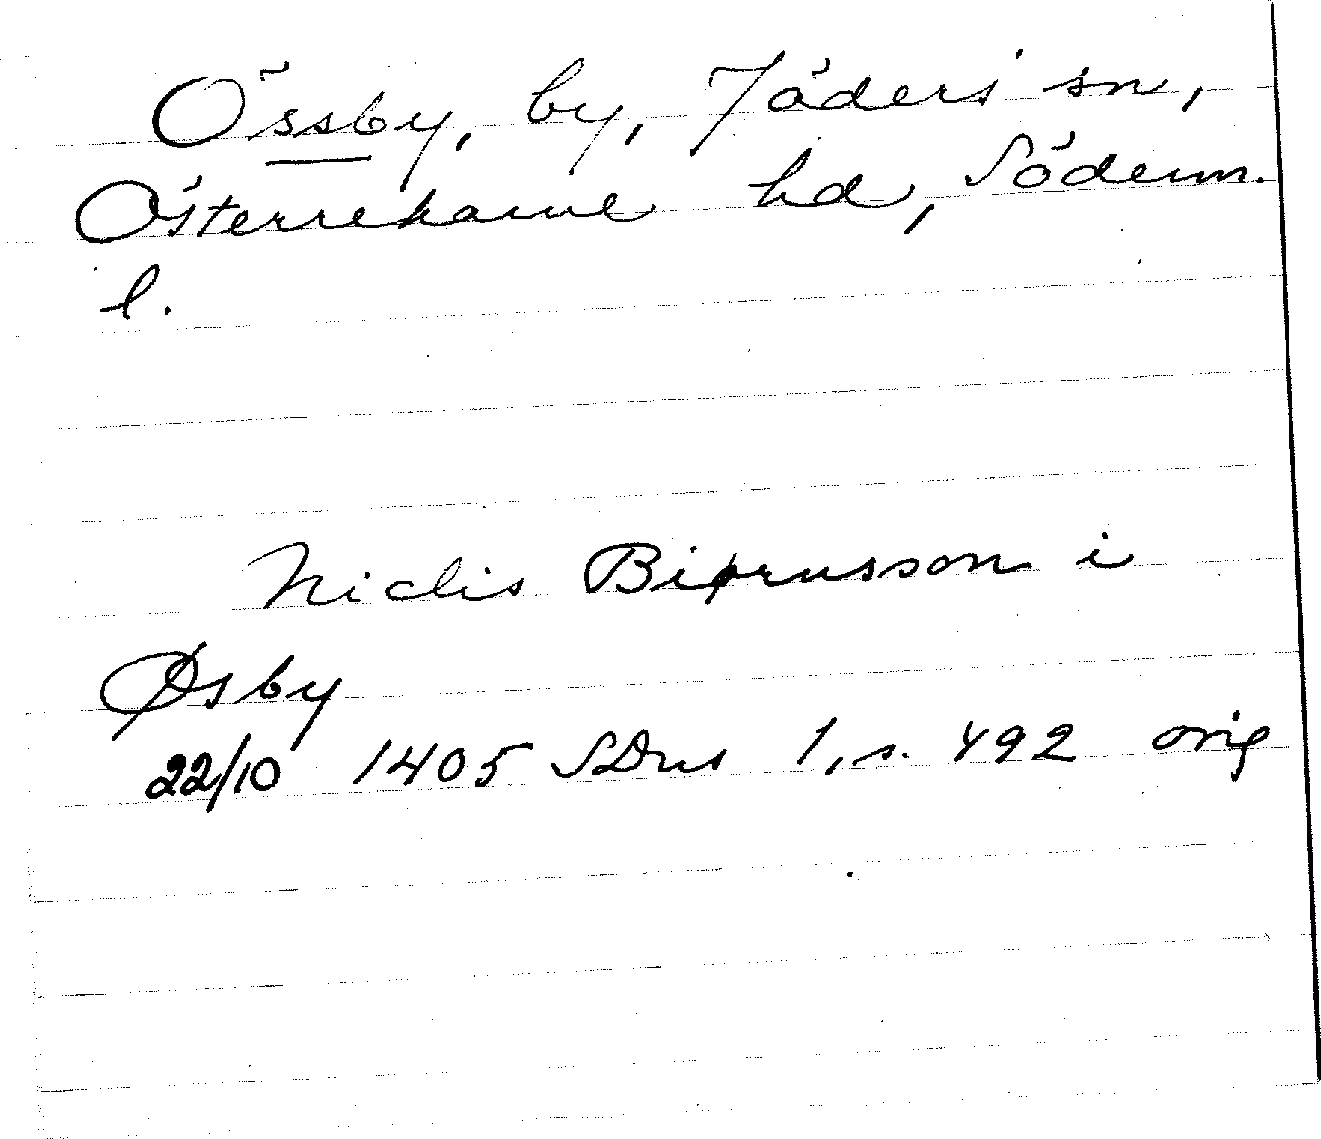 Össby, by, Jäders sn,
Österrekarne hd, Söderm.
l.
Niclis Biørnsson i
Øsby
22/10 1405 SDns 1, s. 492 orig